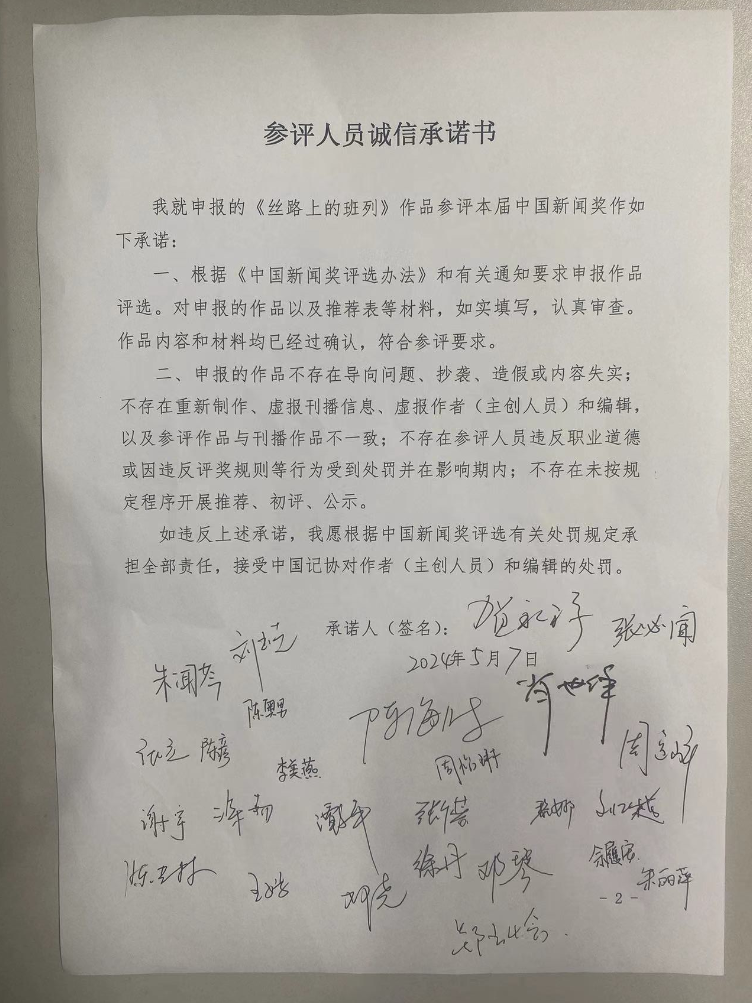 参评人员诚信承诺书
我就申报的《丝路上的班列》作品参评本届中国新闻奖作如
下承诺：
一、根据《中国新闻奖评选办法》和有关通知要求申报作品
评选。对申报的作品以及推荐表等材料，如实填写，认真审查。
作品内容和材料均已经过确认，符合参评要求。
二、申报的作品不存在导向问题、抄袭、造假或内容失实；
不存在重新制作、虚报刊播信息、虚报作者（主创人员）和编辑，
以及参评作品与刊播作品不一致；不存在参评人员违反职业道德
或因违反评奖规则等行为受到处罚并在影响期内；不存在未按规
定程序开展推荐、初评、公示。
如违反上述承诺，我愿根据中国新闻奖评选有关处罚规定承
担全部责任，接受中国记协对作者（主创人员）和编辑的处罚。
承诺人（签名）：
张必闻
2024年5月7日
李美燕
徐丹 邓琴
朱丽萍
-2-